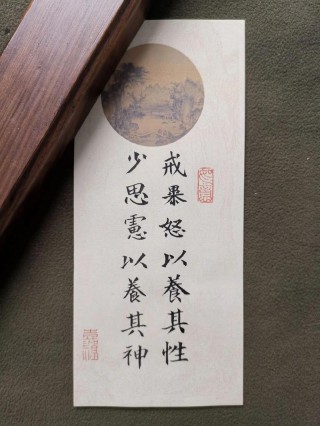 戒暴怒以養其性
少思慮以養其神